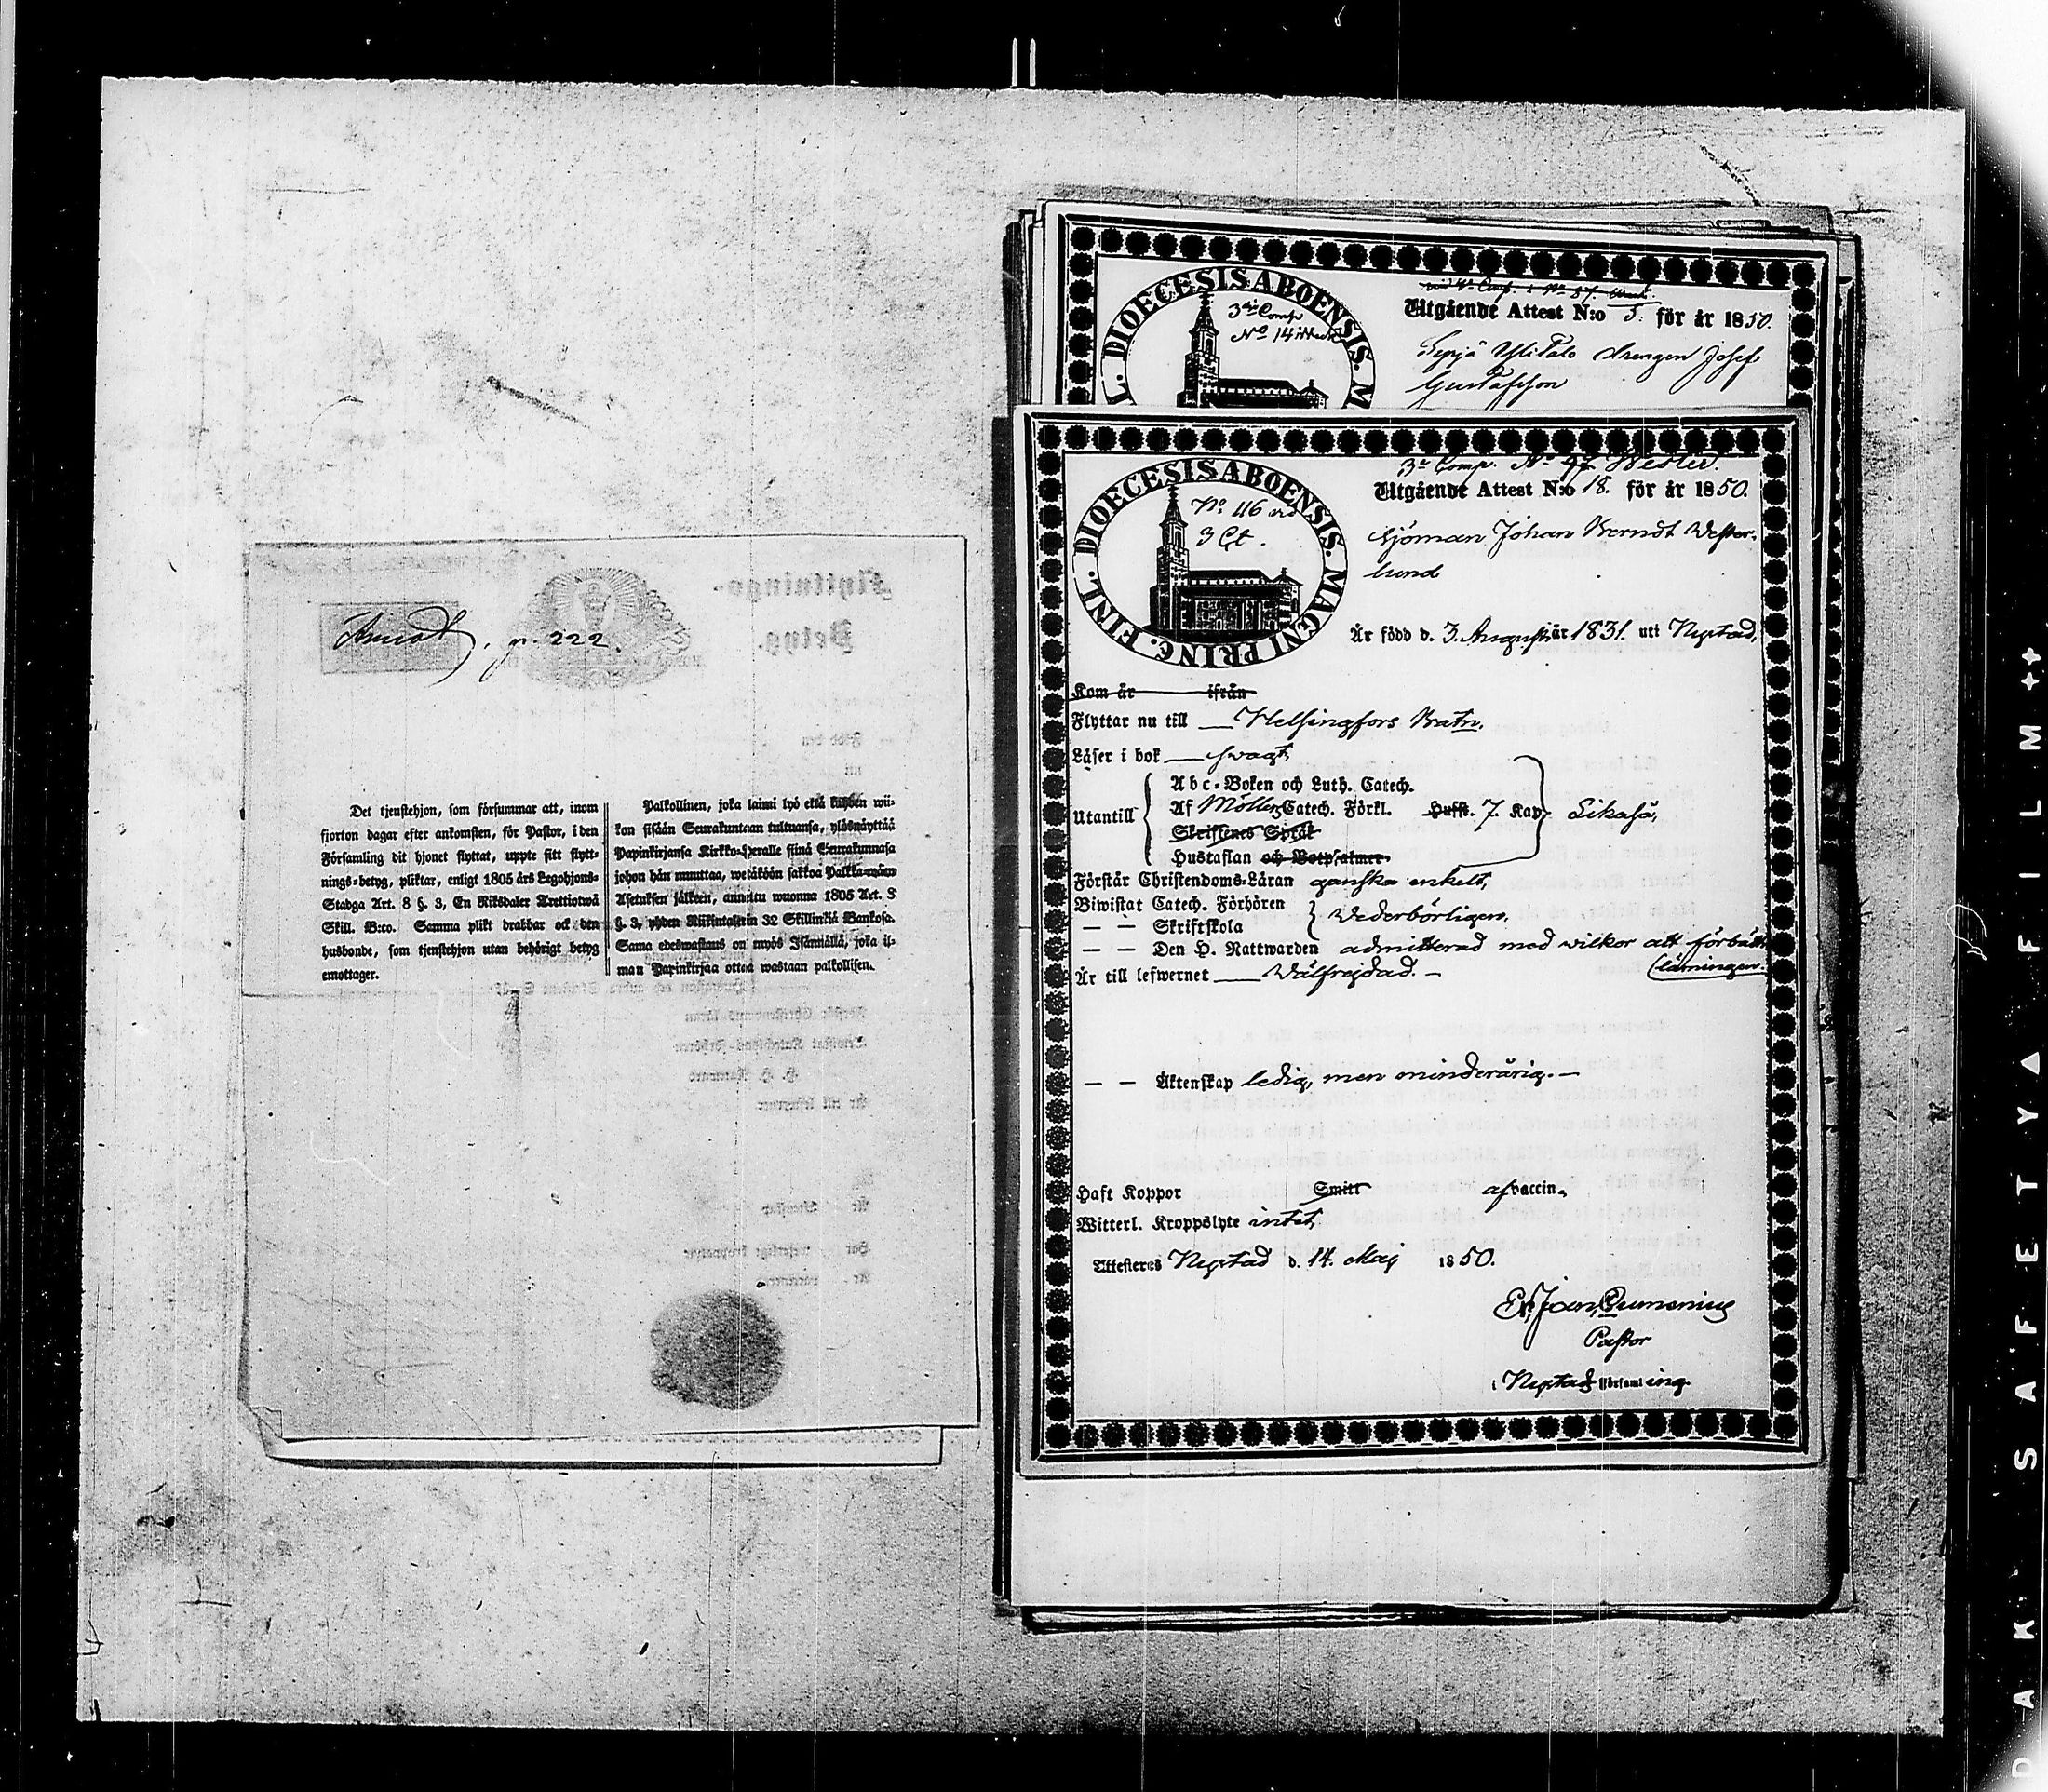 Arnot, p. 222.
Flyttnings-
Betyg.
Det tjenstehjon, som försummar att, inom
fjorton dagar efter ankomsten, för Pastor, i den
Församling dit hjonet flyttat, uppte sitt flytt-
nings-betyg, pliktar, enligt 1805 års Legohjons-
Stadga Art. 8 §. 3, En Riksdaler Trettiotwå
Skill. B:co. Samma plikt drabbar ock den
husbonde, som tjenstehjon utan behörigt betyg
emottager.
Palkollinen, joka laimi lyö että kahden wii-
kon sisään Seurakuntaan tultuansa, ylösnäyttää
Papinkirjansa Kirkko-Herralle siinä Seurakunnasa
johon hän muuttaa, wetäköön sakkoa Palkka-wäen
Asetuksen jälkeen, annettu wuonna 1805 Art. 8
§. 3, yhden Riikintalerin 32 Skillinkiä Bankosa.
Sama edeswastaus on myös Isännällä, joka il-
man Papinkirjaa ottaa wastaan palkollisen.
DIOECESIS ABOENSIS. M
3die Comp
No 14
Utgående Attest N:o 5. för år 1850.
drengen Josef
Gustafsson
DIOECESIS ABOENSIS. MAGNI PRINC. FINL.
No. 46 vid
3 Ct.
3e Comp. No 47 Wester.
Utgående Attest N:o 18. för år 1850.
Sjöman Johan Berndt Wester-
lund
Är född d. 3. Augusti år 1831. uti Nystad,
Kom år ifrån
Flyttar nu till Helsingfors Batn.
Läser i bok swagt,
Utantill
Abc-Boken och Luth. Catech.
Af Möllers Catech. Förkl. Hufst. 7. Kap. Likaså,
Skriftenes Språk
Hustaflan och Botpsalmer.
Förstår Christendoms-Läran ganska enkelt,
Biwistat Catech. Förhören
— — Skriftskola
Wederbörligen,
— — Den H. Nattwarden admitterad med wilkor att förbättra
läsningen.
Är till lefwernet Wälfrejdad. —
— — Äktenskap ledig, men minderårig. —
Haft Koppor Smitt af vaccin.
Witterl. Kroppslyte intet,
Attesteras Nystad d. 14. Maj 1850.
Pastor
i Nystads församling.
DAK SAFETY FILM